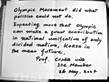 Olympic Movement did what
politics could not do.
Expecting more that Olympic
can make a great contribution
in national unification of only
divided nation, Korea in
the near future.
Prof.
26 May,